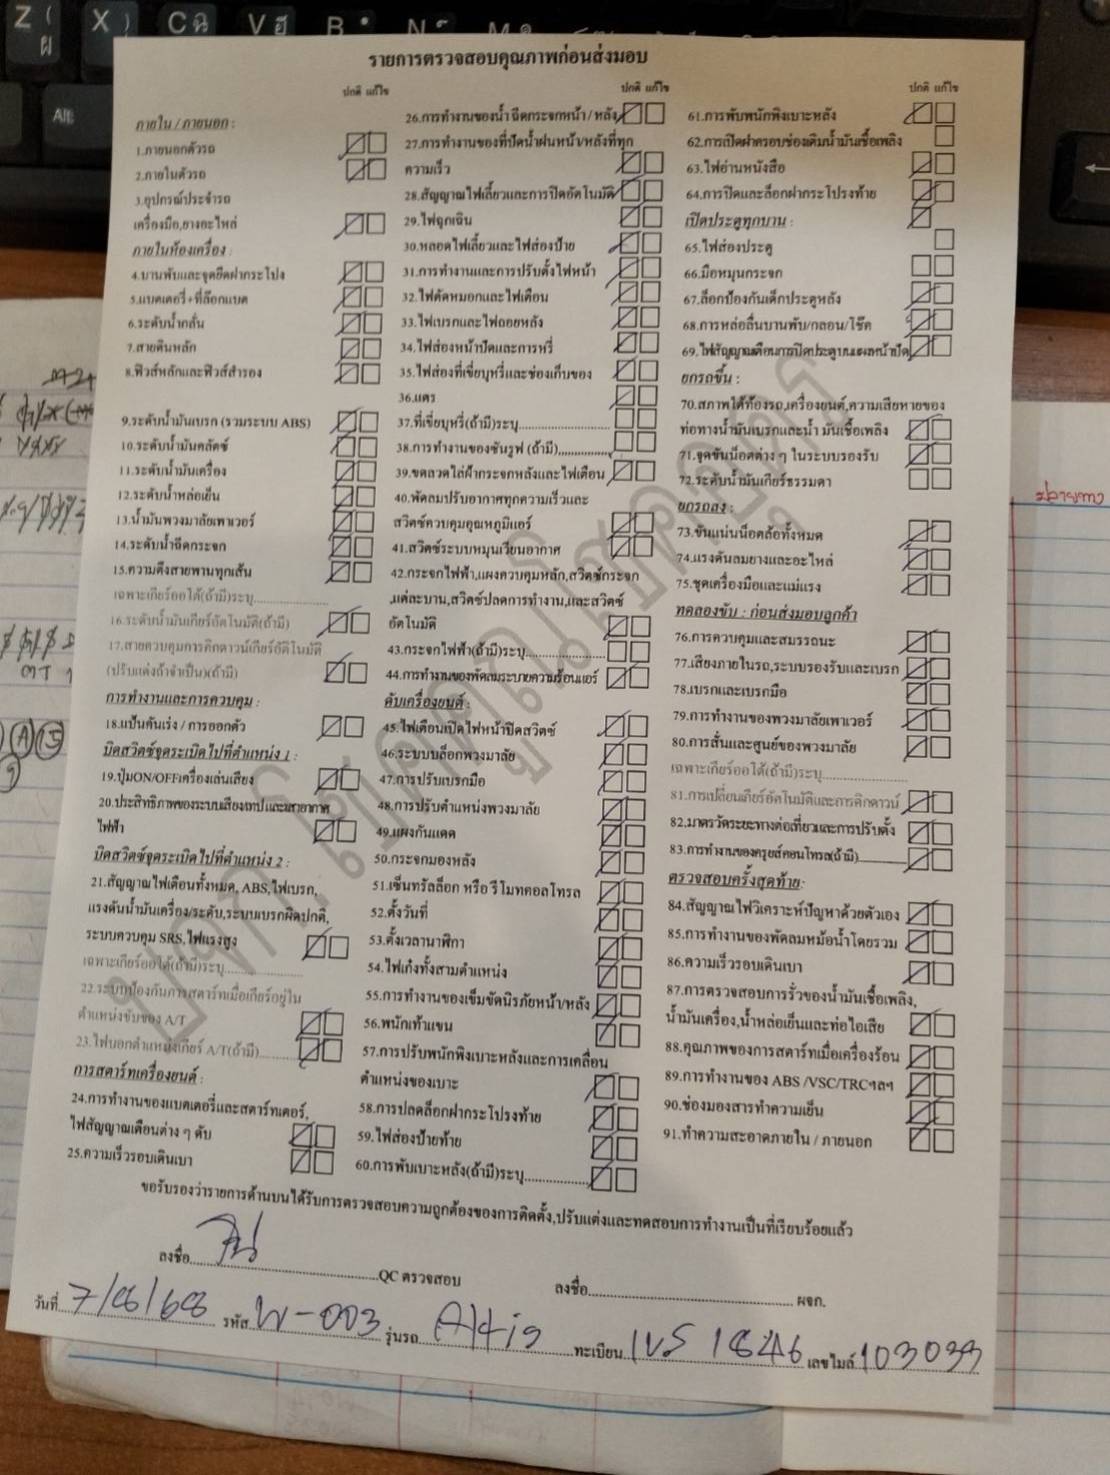 รายการตรวจสอบคุณภาพก่อนส่งมอบ
ปกติ แก้ไข
ภายใน / ภายนอก :
1.ภายนอกตัวรถ
2.ภายในตัวรถ
3.อุปกรณ์ประจำรถ
เครื่องมือ,ยางอะไหล่
ภายในห้องเครื่อง :
4.บานพับและจุดยึดฝากระโปง
5.แบตเตอรี่+ที่ล๊อกแบต
6.ระดับน้ำกลั่น
7.สายดินหลัก
8.ฟิวส์หลักและฟิวส์สำรอง
9.ระดับน้ำมันเบรก (รวมระบบ ABS)
10.ระดับน้ำมันคลัตช์
11.ระดับน้ำมันเครื่อง
12.ระดับน้ำหล่อเย็น
13.น้ำมันพวงมาลัยเพาเวอร์
14.ระดับน้ำฉีดกระจก
15.ความตึงสายพานทุกเส้น
เฉพาะเกียร์ออโต้(ถ้ามี)ระบุ
16.ระดับน้ำมันเกียร์อัตโนมัติ(ถ้ามี)
17.สายควบคุมการคิกดาวน์เกียร์อัติโนมัติ
(ปรับแต่งถ้าจำเป็น)(ถ้ามี)
การทำงานและการควบคุม :
18.แป้นคันเร่ง / การออกตัว
บิดสวิตซ์จุดระเบิดไปที่ตำแหน่ง 1 :
19.ปุ่มON/OFFเครื่องเล่นเสียง
20.ประสิทธิภาพของระบบเสียงเทปและเสาอากาศ
ไฟฟ้า
บิดสวิตซ์จุดระเบิดไปที่ตำแหน่ง 2 :
21.สัญญาณไฟเตือนทั้งหมด, ABS,ไฟเบรก,
แรงดันน้ำมันเครื่อง/ระดับ,ระบบเบรกผิดปกติ,
ระบบควบคุม SRS,ไฟแรงสูง
เฉพาะเกียร์ออโต้(ถ้ามี)ระบุ
22.ระบบป้องกันการสตาร์ทเมื่อเกียร์อยู่ใน
ตำแหน่งขับของ A/T
23.ไฟบอกตำแหน่งเกียร์ A/T(ถ้ามี)
การสตาร์ทเครื่องยนต์ :
24.การทำงานของแบตเตอรี่และสตาร์ทเตอร์,
ไฟสัญญาณเตือนต่าง ๆ ดับ
25.ความเร็วรอบเดินเบา
ปกติ แก้ไข
26.การทำงานของน้ำฉีดกระจกหน้า / หลัง
27.การทำงานของที่ปัดน้ำฝนหน้า/หลังที่ทุก
ความเร็ว
28.สัญญาณไฟเลี้ยวและการปิดอัตโนมัติ
29.ไฟฉุกเฉิน
30.หลอดไฟเลี้ยวและไฟส่องป้าย
31.การทำงานและการปรับตั้งไฟหน้า
32.ไฟตัดหมอกและไฟเตือน
33.ไฟเบรกและไฟถอยหลัง
34.ไฟส่องหน้าปัดและการหรี่
35.ไฟส่องที่เขี่ยบุหรี่และช่องเก็บของ
36.แตร
37.ที่เขี่ยบุหรี่(ถ้ามี)ระบุ
38.การทำงานของซันรูฟ (ถ้ามี)
39.ขดลวดไล่ฝ้ากระจกหลังและไฟเตือน
40.พัดลมปรับอากาศทุกความเร็วและ
สวิตซ์ควบคุมอุณหภูมิแอร์
41.สวิตซ์ระบบหมุนเวียนอากาศ
42.กระจกไฟฟ้า,แผงควบคุมหลัก,สวิตซ์กระจก
,แต่ละบาน,สวิตซ์ปลดการทำงาน,และสวิตซ์
อัตโนมัติ
43.กระจกไฟฟ้า(ถ้ามี)ระบุ
44.การทำงานของพัดลมระบายความร้อนแอร์
ดับเครื่องยนต์ :
45.ไฟเตือนเปิดไฟหน้าปิดสวิตซ์
46.ระบบบล็อกพวงมาลัย
47.การปรับเบรกมือ
48.การปรับตำแหน่งพวงมาลัย
49.แผงกันแดด
50.กระจกมองหลัง
51.เซ็นทรัลล็อก หรือ รีโมทคอลโทรล
52.ตั้งวันที่
53.ตั้งเวลานาฬิกา
54.ไฟเก๋งทั้งสามตำแหน่ง
55.การทำงานของเข็มขัดนิรภัยหน้า/หลัง
56.พนักเท้าแขน
57.การปรับพนักพิงเบาะหลังและการเคลื่อน
ตำแหน่งของเบาะ
58.การปลดล็อกฝากระโปรงท้าย
59.ไฟส่องป้ายท้าย
60.การพับเบาะหลัง(ถ้ามี)ระบุ
ปกติ แก้ไข
61.การพับพนักพิงเบาะหลัง
62.การเปิดฝาครอบช่องเติมน้ำมันเชื้อเพลิง
63.ไฟอ่านหนังสือ
64.การปิดและล็อกฝากระโปรงท้าย
เปิดประตูทุกบาน :
65.ไฟส่องประตู
66.มือหมุนกระจก
67.ล็อกป้องกันเด็กประตูหลัง
68.การหล่อลื่นบานพับ/กลอน/โช๊ค
69.ไฟสัญญาณเตือนการปิดประตูบนแผงหน้าปัด
ยกรถขึ้น :
70.สภาพใต้ท้องรถ,เครื่องยนต์,ความเสียหายของ
ท่อทางน้ำมันเบรกและน้ำมันเชื้อเพลิง
71.จุดขันน็อตต่าง ๆ ในระบบรองรับ
72.ระดับน้ำมันเกียร์ธรรมดา
ยกรถลง :
73.ขันแน่นน็อตล้อทั้งหมด
74.แรงดันลมยางและอะไหล่
75.ชุดเครื่องมือและแม่แรง
ทดลองขับ : ก่อนส่งมอบลูกค้า
76.การควบคุมและสมรรถนะ
77.เสียงภายในรถ,ระบบรองรับและเบรก
78.เบรกและเบรกมือ
79.การทำงานของพวงมาลัยเพาเวอร์
80.การสั่นและศูนย์ของพวงมาลัย
เฉพาะเกียร์ออโต้(ถ้ามี)ระบุ
81.การเปลี่ยนเกียร์อัตโนมัติและการคิกดาวน์
82.มาตรวัดระยะทางต่อเที่ยวและการปรับตั้ง
83.การทำงานของครูยส์คอนโทรล(ถ้ามี)
ตรวจสอบครั้งสุดท้าย:
84.สัญญาณไฟวิเคราะห์ปัญหาด้วยตัวเอง
85.การทำงานของพัดลมหม้อน้ำโดยรวม
86.ความเร็วรอบเดินเบา
87.การตรวจสอบการรั่วของน้ำมันเชื้อเพลิง,
น้ำมันเครื่อง,น้ำหล่อเย็นและท่อไอเสีย
88.คุณภาพของการสตาร์ทเมื่อเครื่องร้อน
89.การทำงานของ ABS /VSC/TRCฯลฯ
90.ช่องมองสารทำความเย็น
91.ทำความสะอาดภายใน / ภายนอก
ขอรับรองว่ารายการด้านบนได้รับการตรวจสอบความถูกต้องของการติดตั้ง,ปรับแต่งและทดสอบการทำงานเป็นที่เรียบร้อยแล้ว
ลงชื่อ QC ตรวจสอบ
ลงชื่อ ผจก.
วันที่ 7/8/68 รหัส W-003 รุ่นรถ Altis ทะเบียน 1846 เลขไมล์ 103033
ปลายทาง
Alt